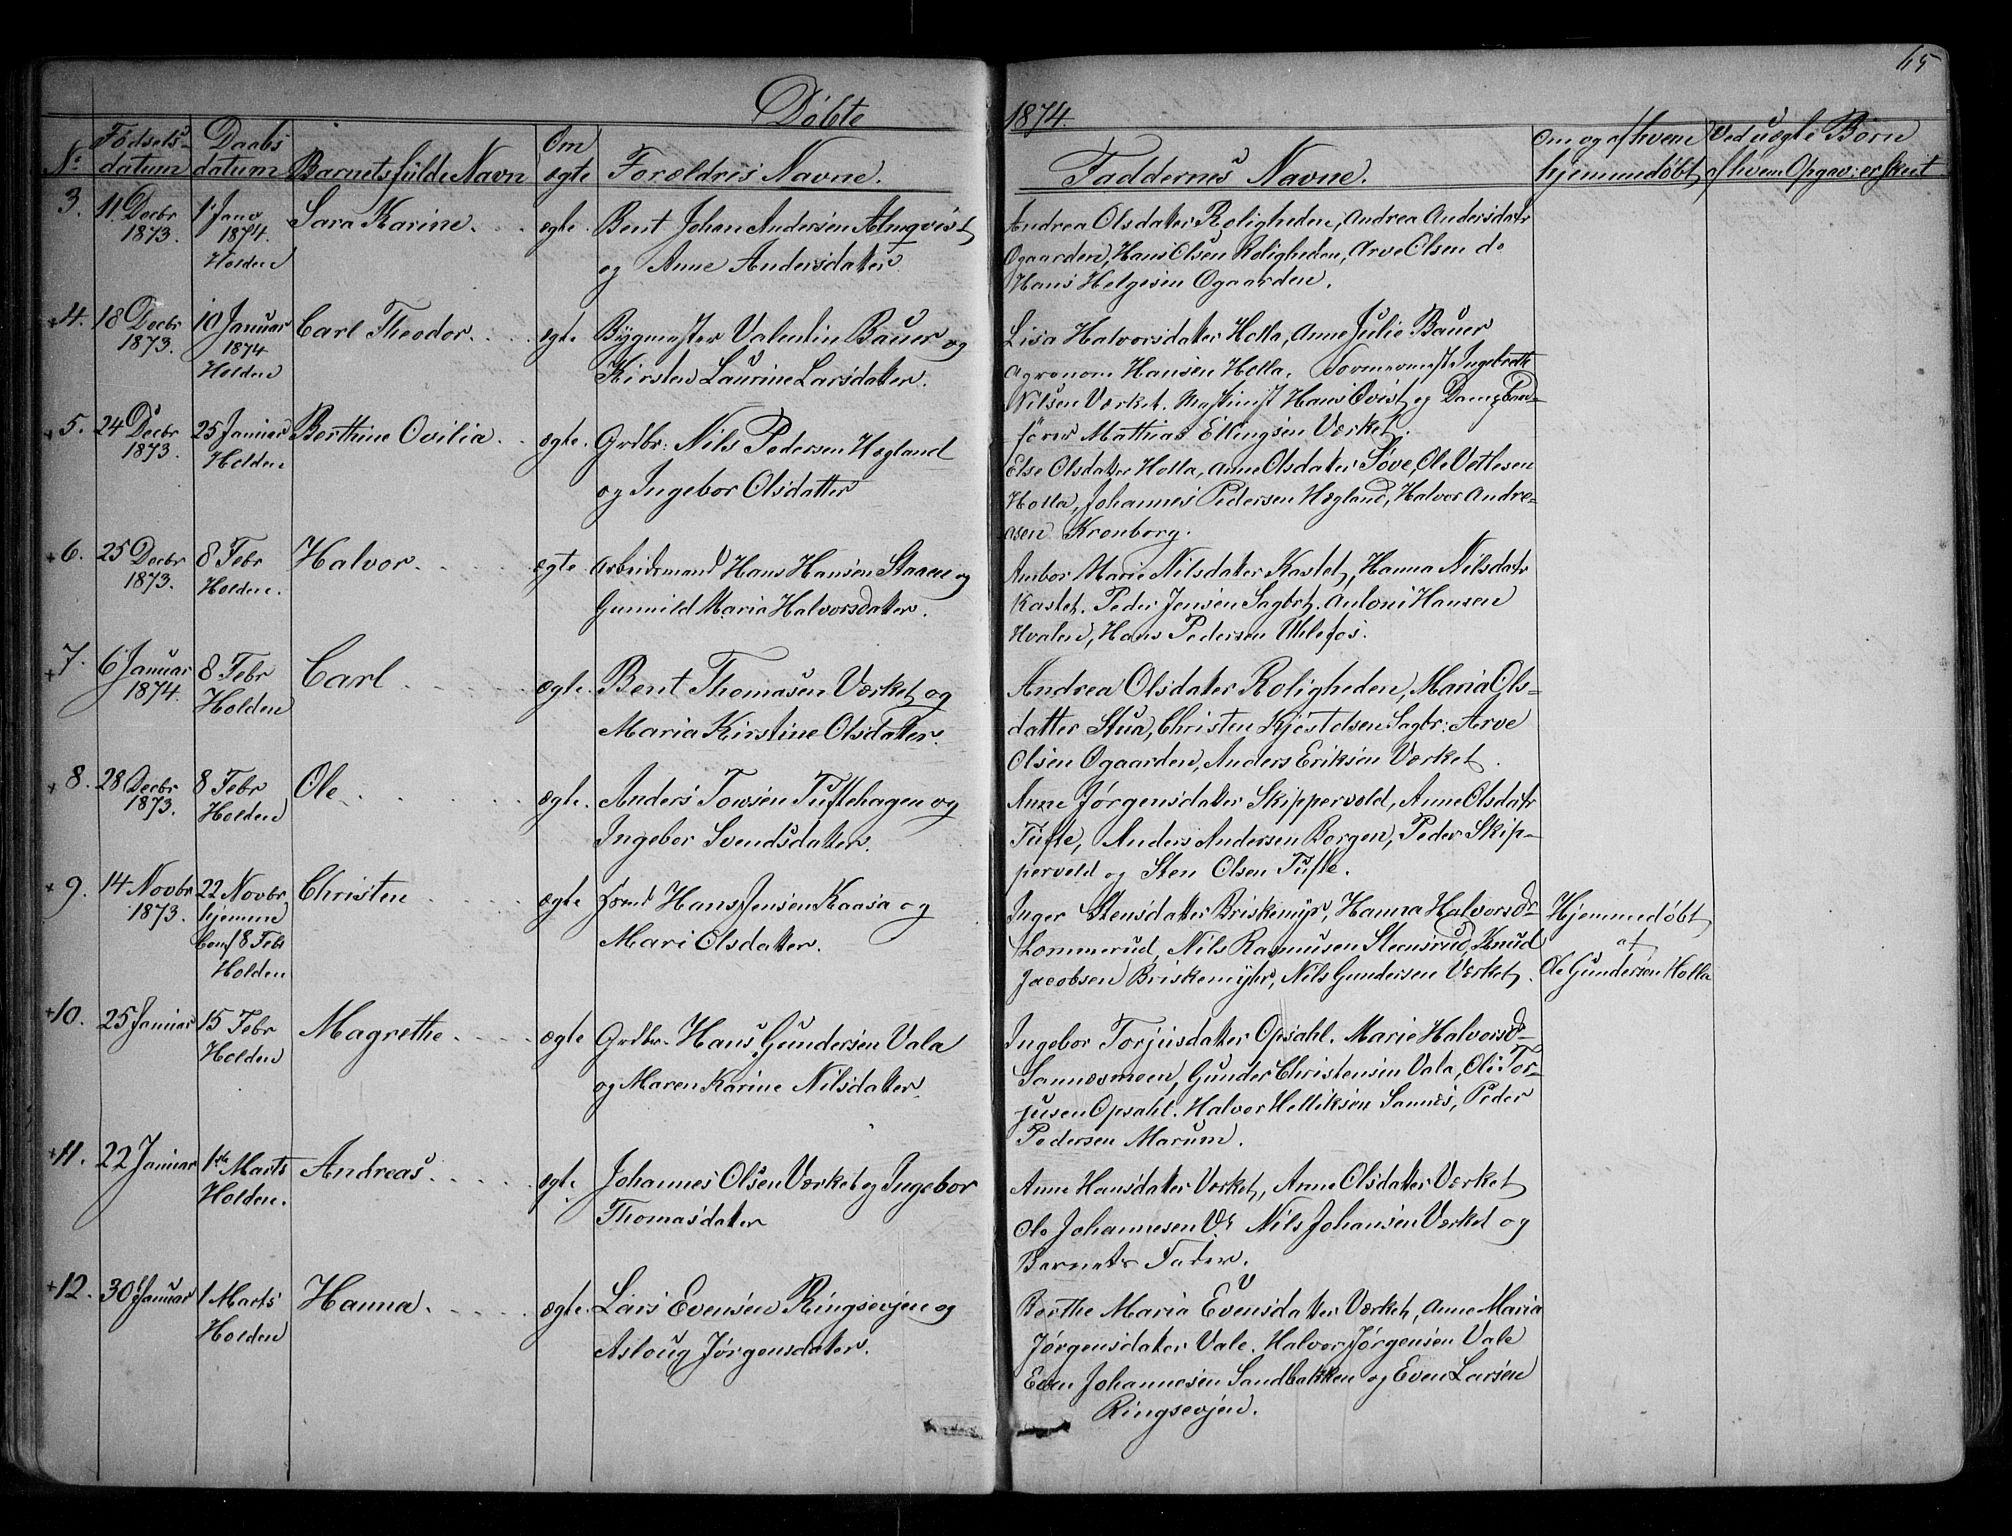 65
Døbte 1874.
No Fødsels- datum Daabs datum Barnets fulde Navn Om ægte Forældris Navne. Faddernes Navne. Om og af hvem hjemmedøbt Ved uægte Børn af hvem Opgav: er skeet
3. 11. Decbr 1873. 1 Janv 1874. Holden Sara Karine. ægte. Bent Johan Andersen Almqvist
og Anne Andersdatter.
Andrea Olsdater Roligheden, Andrea Andersdatr
Ogaarden, Hans Olsen Roligheden, Arve Olsen do
Hans Helgesen Ogaarden.
4. 18 Decbr 1873. 10 Januar 1874 Holden Carl Theodor. ægte Bygmester Valentin Bauer og
Kirsten Laurine Larsdatter.
Lisa Halvorsdater Holla, Anne Julie Bauer
Agronom Hansen Holla. Ingebreth
Nilsen Værket. Maskinist Hans Qvist og
fører Mathias Ellingsen Værket.
5. 24 Decbr 1873. 25 Januar Holden Berthine Ovilia. ægte. Grdbr: Nils Pedersen Hægland
og Ingebor Olsdatter
Else Olsdater Holla, Anne Olsdater Søve, Ole Vetlesen
Holla, Johannes Pedersen Hægland, Halvor Andre-
asen Kronborg.
6. 25 Decbr 1873. 8 Febr Holden. Halvor. ægte Arbeidsmand Hans Hansen Staaen og
Gunnild Maria Halvorsdater.
Ambor Marie Nilsdater Kastet, Hanna Nilsdatr
Kastet. Peder Jensen Sagbr. Antoni Hansen
Hvalen, Hans Pedersen Ulefos.
7. 6 Januar 1874. 8 Febr Holden Carl ægte. Bent Thomasen Værket og
Maria Kirstine Olsdatter.
Andrea Olsdater Roligheden, Maria Ols-
datter Stua, Christen Kjostolsen Sagbr: Arve
Olsen Ogaarden, Anders Eriksen Værket.
8. 28 Decbr 1873. 8 Febr Holden Ole. ægte. Anders Towsen Tuftehagen og
Ingebor Svendsdatter.
Anne Jørgensdater Skippervold, Anne Olsdatr
Tufte, Anders Andersen Borgen, Peder Skip-
pervold og Sten Olsen Tufte.
9. 14 Novbr 1873. 22 Novbr hjemme Conf 8 Febr Holden Christen ægte Hans Jensen Kaasa og
Mari Olsdater.
Inger Stensdatter Briskemyr, Hanna Halvorsdr
Lommerud, Nils Rasmusen Steensrud, Knud
Jacobsen Briskemyhr, Nils Gundersen Værket.
Hjemmedøbt
af
Ole Gundersen Holla
10. 25 Januar 15 Febr Holden Magrethe. ægte Grdbr. Hans Gundersen Vala
og Maren Karine Nilsdatter.
Ingebor Torjusdatter Opsahl. Marie Halvorsd-
Sannesmoen, Gunder Christensen Vala, Ole Tor-
jusen Opsahl. Halvor Helliksen Sannes, Peder
Pedersen Marum.
11. 22 Januar 1ste Marts Holden. Andreas. ægte Johannes Olsen Værket og Ingebor
Thomasdater
Anne Hansdater Værket, Anne Olsdatter Værket
Ole Johannesen V. Nils Johansen Værket og
Barnets Fader.
12. 30 Januar 1 Marts Holden Hanna. ægte. Lars Evensen Ringsevjen og
Asloug Jørgensdater.
Berthe Maria Evensdatter Værket, Anne Maria
Jørgensdater Vale. Halvor Jørgensen Vale
Even Johannesen Sandbakken og Even Larsen
Ringsevjen.